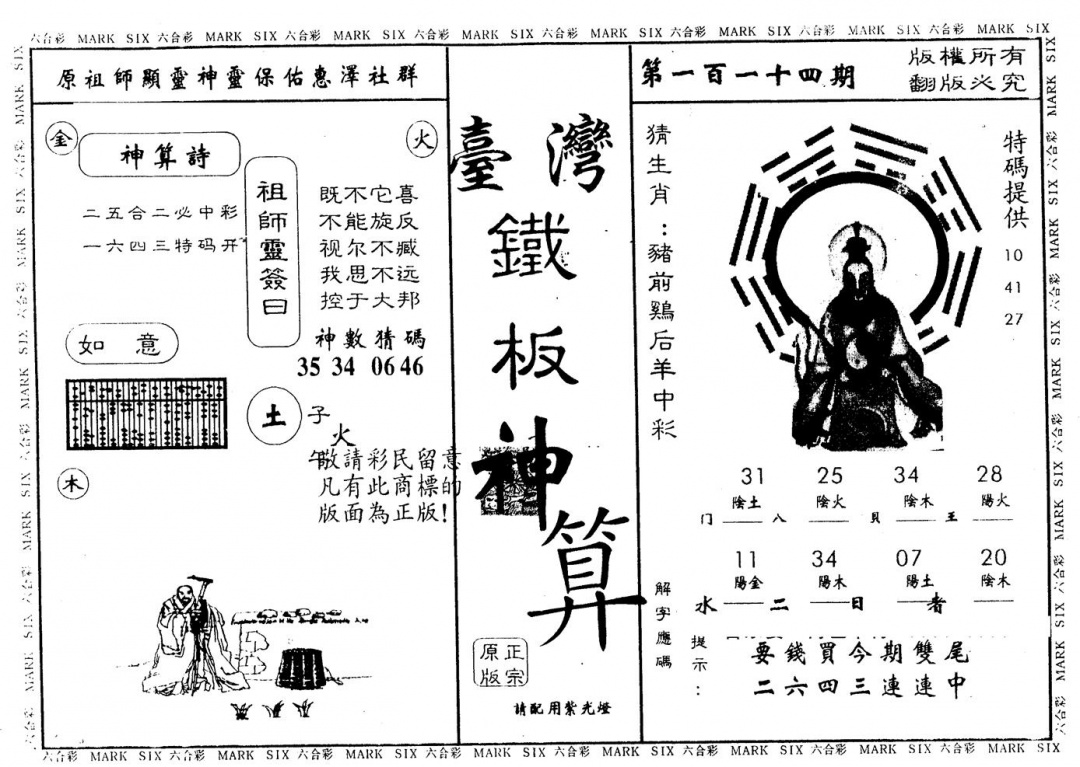 六合彩 MARK SIX 六合彩 MARK SIX 六合彩 MARK SIX 六合彩 MARK SIX 六合彩 MARK SIX 六合彩 MARK SIX 六合彩 MARK SIX 六合彩 MARK SIX
原祖師顯靈神靈保佑惠澤社群
金
火
神算詩
二五合二必中彩
一六四三特码开
祖師靈簽曰
既不它喜
不能旋反
视尔不臧
我思不远
控于大邦
神數猜碼
35 34 06 46
如意
土
子
火
午
木
敬請彩民留意
凡有此商標的
版面為正版!
臺灣
鐵
板
神
算
正宗
原版
請配用紫光燈
第一百一十四期
版權所有
翻版必究
猜生肖:豬前鷄后羊中彩
特碼提供
10
41
27
31 25 34 28
陰土 陰火 陰木 陽火
门 八 貝 王
11 34 07 20
陽金 陽木 陽土 陰木
水 二 日 者
解字應碼
提示:
要錢買今期雙尾
二六四三連連中
六合彩 MARK SIX 六合彩 MARK SIX 六合彩 MARK SIX 六合彩 MARK SIX 六合彩 MARK SIX 六合彩 MARK SIX 六合彩 MARK SIX 六合彩 MARK SIX